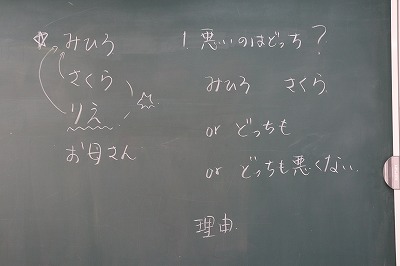 ☆ みひろ
さくら
りえ
お母さん
! 悪いのはどっち?
みひろ さくら
or どっちも
or どっちも悪くない.
理由.